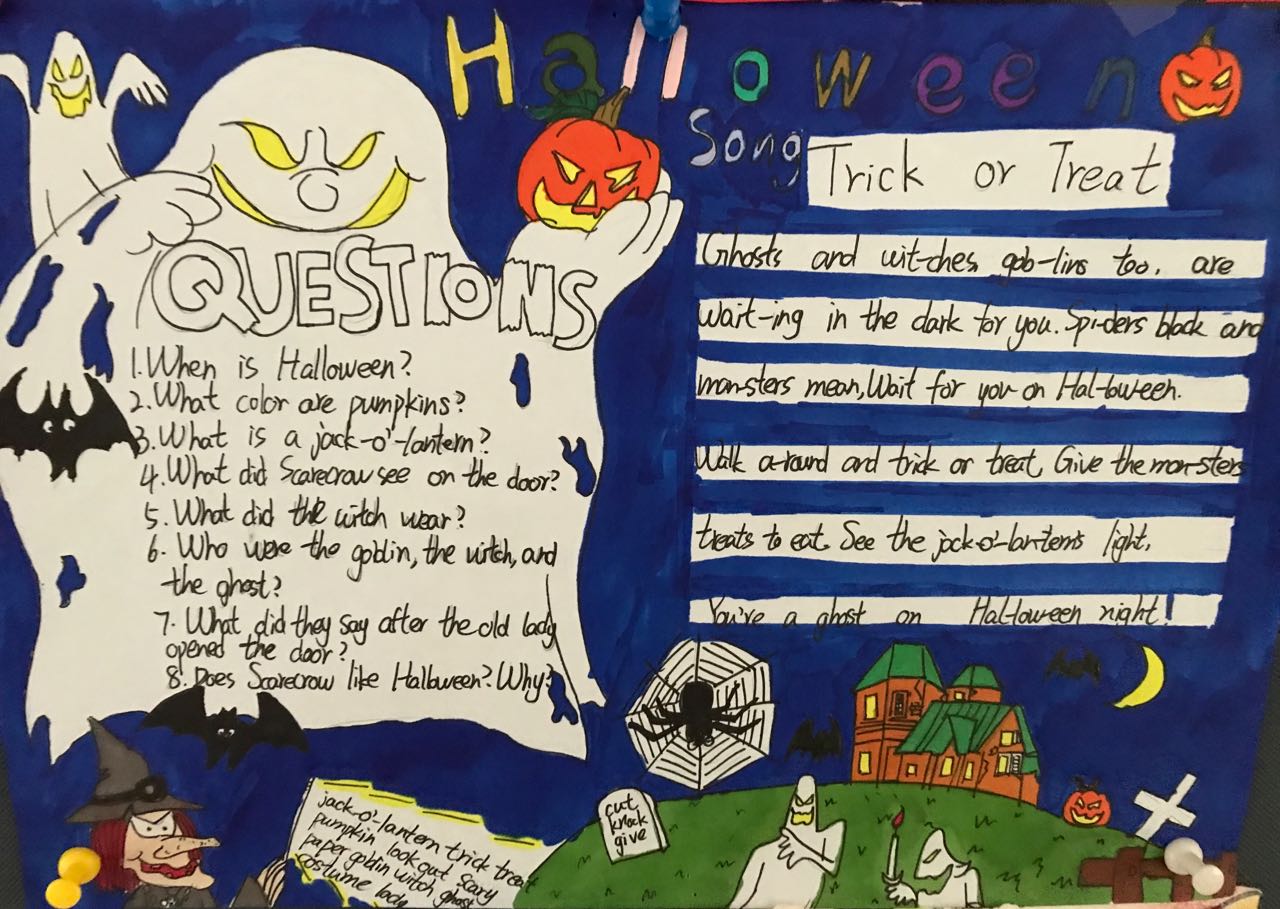 Halloween
Song
Trick or Treat
QUESTIONS
1. When is Halloween?
2. What color are pumpkins?
3. What is a jack-o'-lantern?
4. What did Scarecrow see on the door?
5. What did the witch wear?
6. Who were the goblin, the witch, and
the ghost?
7. What did they say after the old lady
opened the door?
8. Does Scarecrow like Halloween? Why?
Ghosts and wit-ches, gob-lins too, are
wait-ing in the dark for you. Spi-ders black and
mon-sters mean, Wait for you on Hal-loween.
Walk a-round and trick or treat, Give the mon-sters
treats to eat. See the jack-o'-lan-tern's light,
You're a ghost on Hal-loween night!
jack-o'-lantern trick treat
pumpkin look out scary
paper goblin witch ghost
costume lady
cut
knock
give